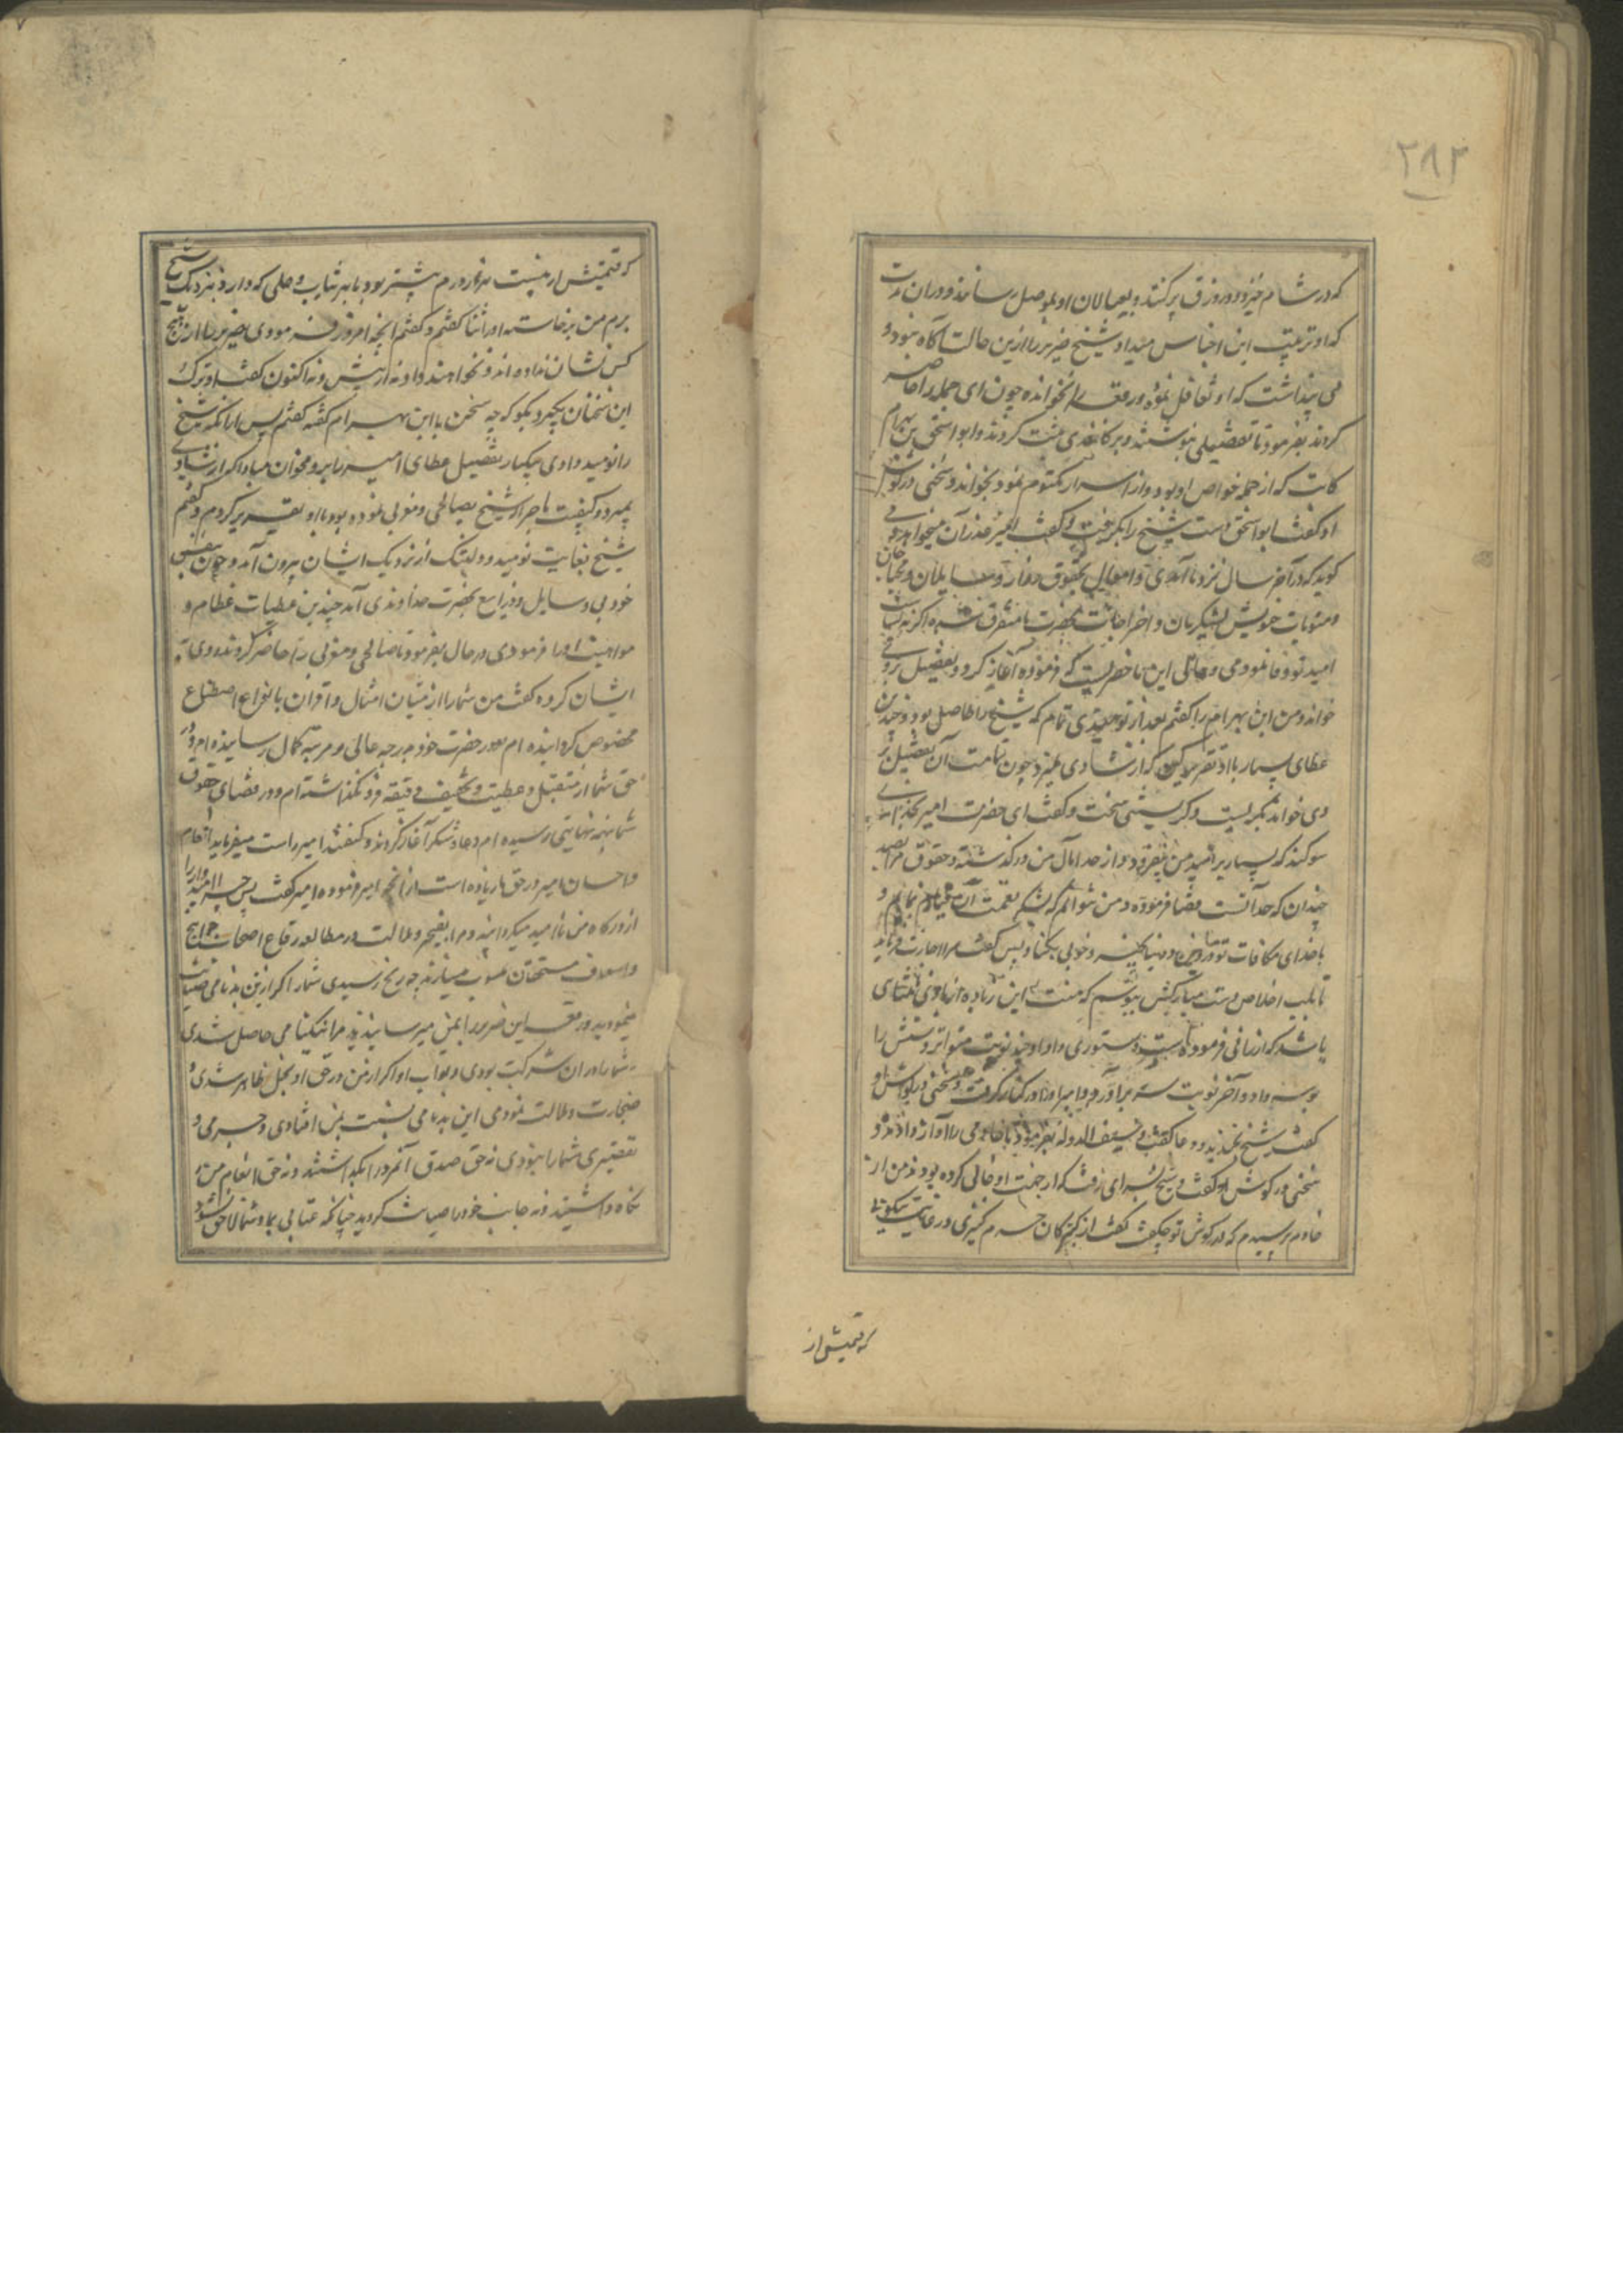 ۲۸۲
که در شام خیزد و در زورق پر کنند و بعیالان او بموصل رسانند و در آن مدت
که او ترتیب این اجناس میداد شیخ ضریر را ازین حالت آگاه نبود و
می پنداشت که او تغافل نمود و رقعه را نخوانده چون این جمله را حاضر
کردند بفرمود تا تفصیلی نبوشتند و بر کاغذی ثبت کردند و ابو اسحق بن بهرام
کاتب که از جمله خواص او بود و از اسرار مکتوم نمود بخواند و سخنی در گوش
او گفت ابو اسحق دست شیخ را بگرفت و گفت امیر عذر آن میخواهد و می
گوید که در آخر سال نزد ما آمدی و اموال بحقوق زوار و سایلان و محتاجان
و مثوبات خویش لشکریان و اخراجات حضرت ما متفرق شده اگر نه
امید تو وفا نمودمی و حالی این ماحضریست که فرموده آغاز کرد و تفصیل بر وی
خواند و من ابن بهرام را گفتم بعد از نومیدی تمام که شیخ را حاصل بود و چندین
عطای بسیار با او تقریر مکن که از شادی بمیرد چون تمامت آن تفصیل بر
وی خواند بگریست و گریستنی سخت و گفت ای حضرت امیر بخدای
سوگند که بسیار بر امید من بیفزود و از حد آمال من در گذشته و حقوق مرا
چندان که خدا آنست قضا فرموده و من نتوانم که بشکر نعمت آن قیام نمایم و
با خدای مکافات تو در دین و دنیا بخیر و خوبی بکناد پس گفت مرا اجازت فرماید
تا بلب اخلاص دست مبارکش ببوسم که منت این زیاده از باقی عطای
باشد که ارزانی فرموده است دستوری داد او چند نوبت متواتر دستش را
بوسه داد و آخر نوبت سر برآورد و امیر او را در کنار گرفت و سخنی در گوش او
گفت شیخ بخندید و دعا گفت و سیف الدوله بفرمود تا خادمی را آواز دادند و
سخنی در گوش او گفت و شیخ بسرای رفت که از جهت او خالی کرده بودند من از
خادم پرسیدم که در گوش تو چگفت گفت از کنیزکان حرم کنیزی در غایت نیکویی
که قیمتش از
که قیمتش از بیست هزار درم بیشتر بود با هر ثیاب و حلی که دارد بنزدیک شیخ
برم من برخاستم او را ثنا گفتم و گفتم آنچه امروز فرمودی ضریر را از هیچ
کس نشان نداده اند و نخواهند داد نه از پیش و نه اکنون گفت او ترک
این سخنان بگیر و بگو که چه سخن با ابن بهرام گفته گفتم پس از آنکه شیخ
را نومید دادی بیکبار تفصیل عطای امیر را برو مخوان مبادا که از شادی
بمیرد و کیفیت ماجرای شیخ بصالحی و مغربی نموده بود با او تقریر کردم و گفتم
شیخ بغایت نومید و دلتنگ از نزدیک ایشان بیرون آمد و چون بنفس
خود بی وسایل و ذرایع بحضرت خداوندی آمد چندین عطیات عظام و
مواهب او را فرمودی در حال بفرمود تا صالحی و مغربی را حاضر کردند و روی به
ایشان کرده گفت من شما را از میان امثال و اقران بانواع اصطناع
مخصوص گردانیده ام و در حضرت خود بدرجه عالی و مرتبه کمال رسانیده ام و در
حق شما از تقبل و عطیت و تخفیف دقیقه فرو نگذاشته ام و در قضای حقوق
شما بچه نهایتی رسیده ام دعا و شکر آغاز کردند و گفتند امیر راست میفرماید انعام
و احسان امیر در حق ما زیاده است از آنچه امیر فرموده امیر گفت پس چرا امیدوار را
از درگاه من نا امید میگردانید و مرا بضجر و ملالت در مطالعه رقاع اصحاب حوایج
و اسعاف مستحقان منسوب میدارید چه رنج رسیدی شما را اگر از من بدنامی صیانت
نمودید و رقعه این ضریر را بمن میرسانیدید مرا نیکنامی حاصل شدی
و شما را در آن شرکت بودی و ثواب او اگر از من در حق او بخل ظاهر شدی و
ضجارت و ملالت نمودمی این بدنامی نسبت بمن افتادی و جرمی و
تقصیری شما را نبودی نه حق صدق آنمرد را نگهداشتند و نه حق انعام من
نگاه داشتید و نه جانب خود را صیانت کردید چنانکه عتابی بما و شما لاحق نشود